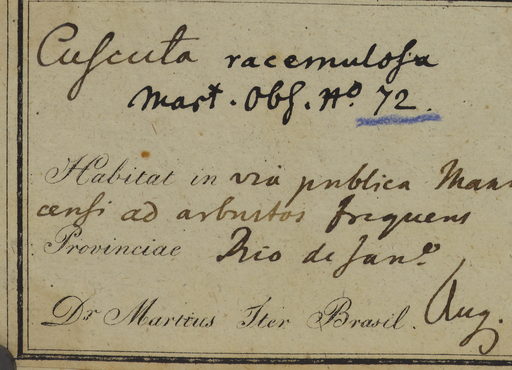 Cuscuta racemulosa
Mart. Obs. No. 72.
Habitat in via publica
censi ad arbustos frequens
Provinciae Rio de Jano.
Dr. Martius Iter Brasil. Aug.